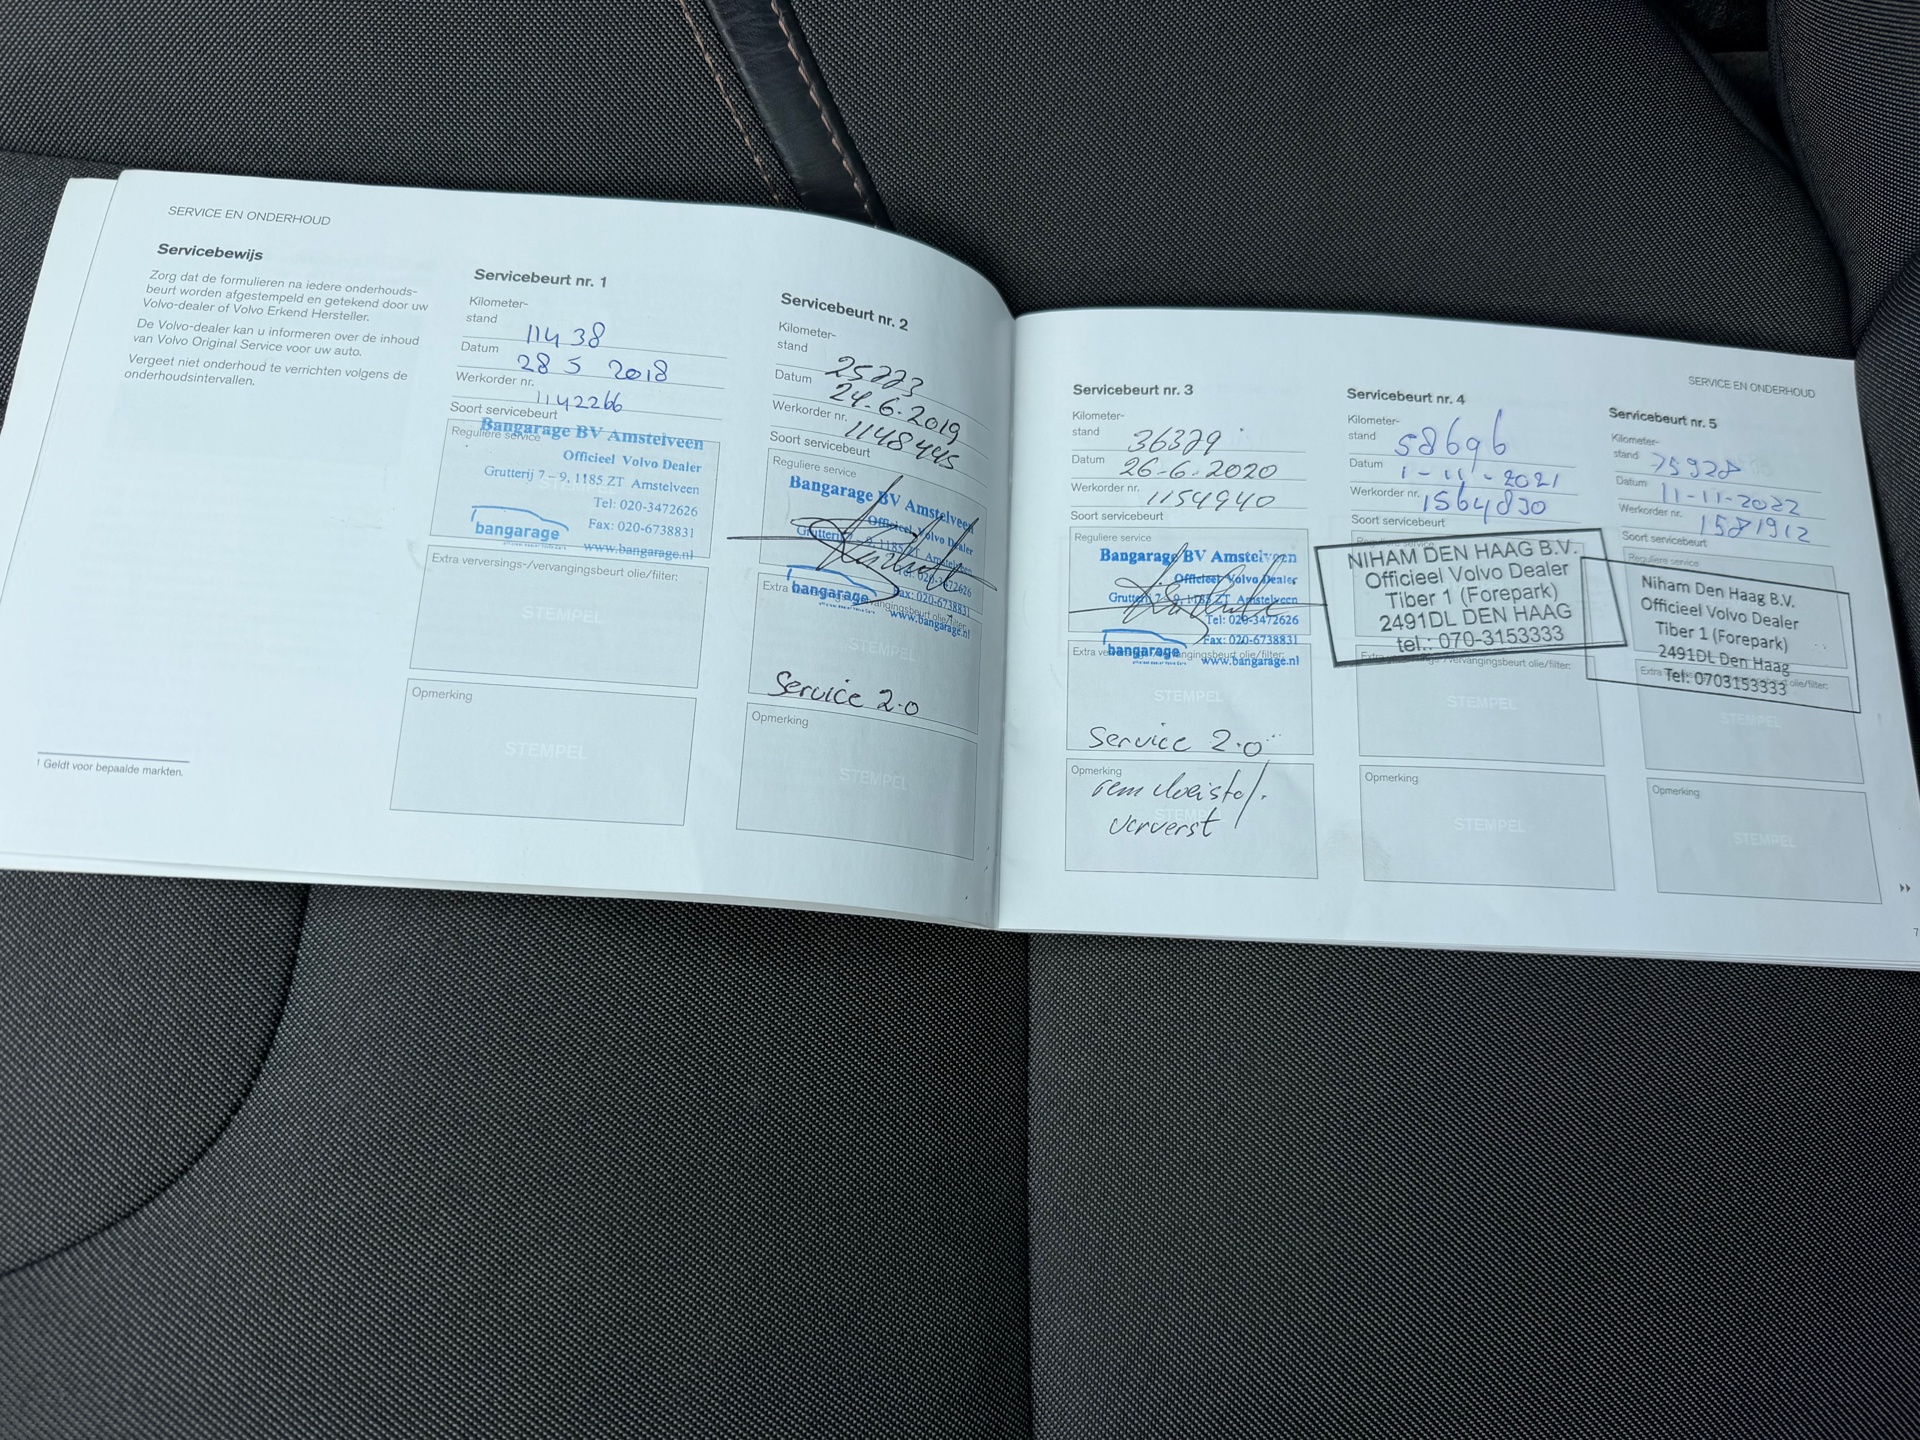 SERVICE EN ONDERHOUD
Servicebewijs
Zorg dat de formulieren na iedere onderhouds-
beurt worden afgestempeld en getekend door uw
Volvo-dealer of Volvo Erkend Hersteller.
De Volvo-dealer kan u informeren over de inhoud
van Volvo Original Service voor uw auto.
Vergeet niet onderhoud te verrichten volgens de
onderhoudsintervallen.
1 Geldt voor bepaalde markten.
Servicebeurt nr. 1
Kilometer-
stand 11438
Datum 28 5 2018
Werkorder nr. 1142266
Soort servicebeurt
Reguliere service
Bangarage BV Amstelveen
Officieel Volvo Dealer
Grutterij 7 – 9, 1185 ZT Amstelveen
Tel: 020-3472626
Fax: 020-6738831
bangarage
www.bangarage.nl
Extra verversings-/vervangingsbeurt olie/filter:
STEMPEL
Opmerking
STEMPEL
Servicebeurt nr. 2
Kilometer-
stand
Datum 24.6.2019
Werkorder nr. 1148445
Soort servicebeurt
Reguliere service
Bangarage BV Amstelveen
Officieel Volvo Dealer
Grutterij 7 – 9, 1185 ZT Amstelveen
Tel: 020-3472626
Fax: 020-6738831
bangarage
www.bangarage.nl
STEMPEL
Service 2.0
Opmerking
STEMPEL
SERVICE EN ONDERHOUD
Servicebeurt nr. 3
Kilometer-
stand
Datum 26-6-2020
Werkorder nr. 1154940
Soort servicebeurt
Reguliere service
Bangarage BV Amstelveen
Officieel Volvo Dealer
Grutterij 7 – 9, 1185 ZT Amstelveen
Tel: 020-3472626
Fax: 020-6738831
bangarage
www.bangarage.nl
STEMPEL
Service 2.0
Opmerking
ververst
Servicebeurt nr. 4
Kilometer-
stand 58696
Datum 1-11-2021
Werkorder nr. 1564830
Soort servicebeurt
NIHAM DEN HAAG B.V.
Officieel Volvo Dealer
Tiber 1 (Forepark)
2491DL DEN HAAG
tel.: 070-3153333
STEMPEL
Opmerking
STEMPEL
Servicebeurt nr. 5
Kilometer-
stand 75928
Datum 11-11-2022
Werkorder nr. 1581912
Soort servicebeurt
Reguliere service
Niham Den Haag B.V.
Officieel Volvo Dealer
Tiber 1 (Forepark)
2491DL Den Haag
Tel: 0703153333
STEMPEL
Opmerking
STEMPEL